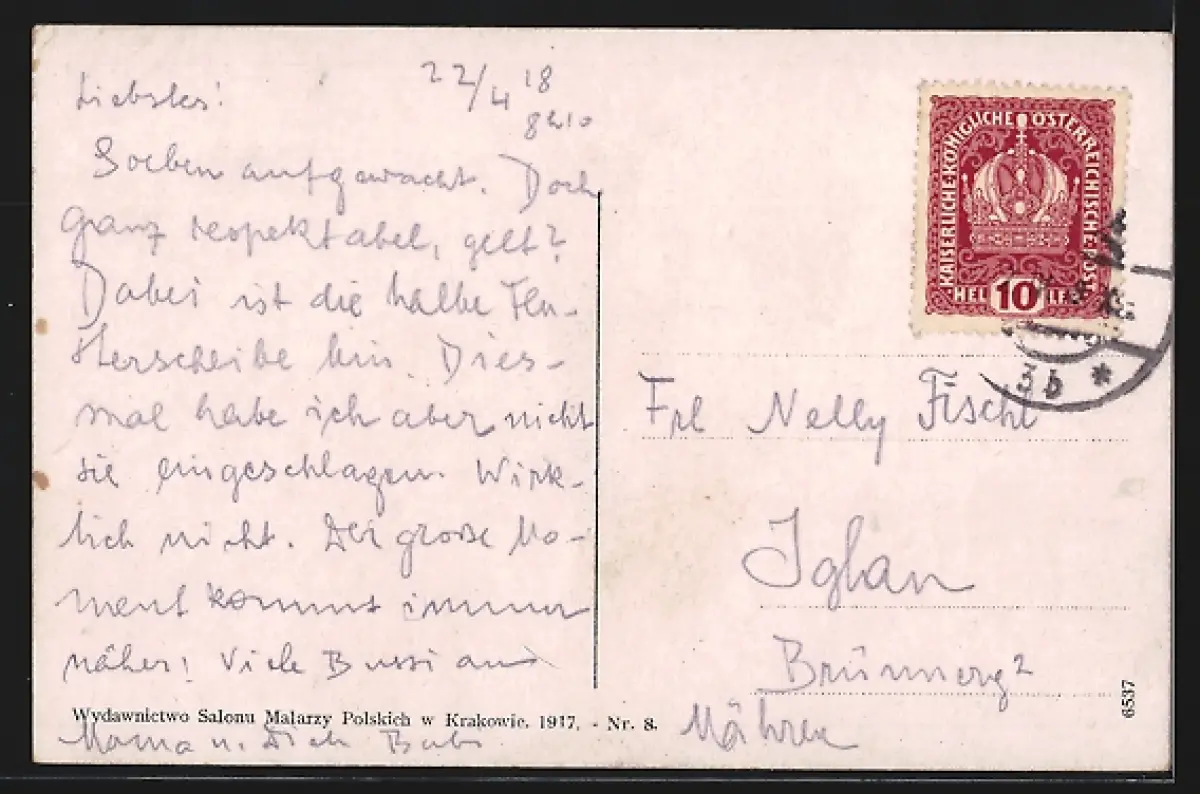 22/4 18
8h10
Liebstes!
Soeben aufgewacht. Doch
ganz respektabel, gelt?
Dabei ist die halbe Fen-
sterscheibe hin. Dies-
mal habe ich aber nicht
sie eingeschlagen. Wirk-
lich nicht. Der große Mo-
ment kommt immer
näher! Viele Bussi an
Mama u. Dich Bubi
Wydawnictwo Salonu Malarzy Polskich w Krakowie. 1917. - Nr. 8.
KAISERLICHE KÖNIGLICHE ÖSTERREICHISCHE POST
HELLER 10
3b *
Frl Nelly Fischl
Iglau
Brünnerg 2
Mähren
6537